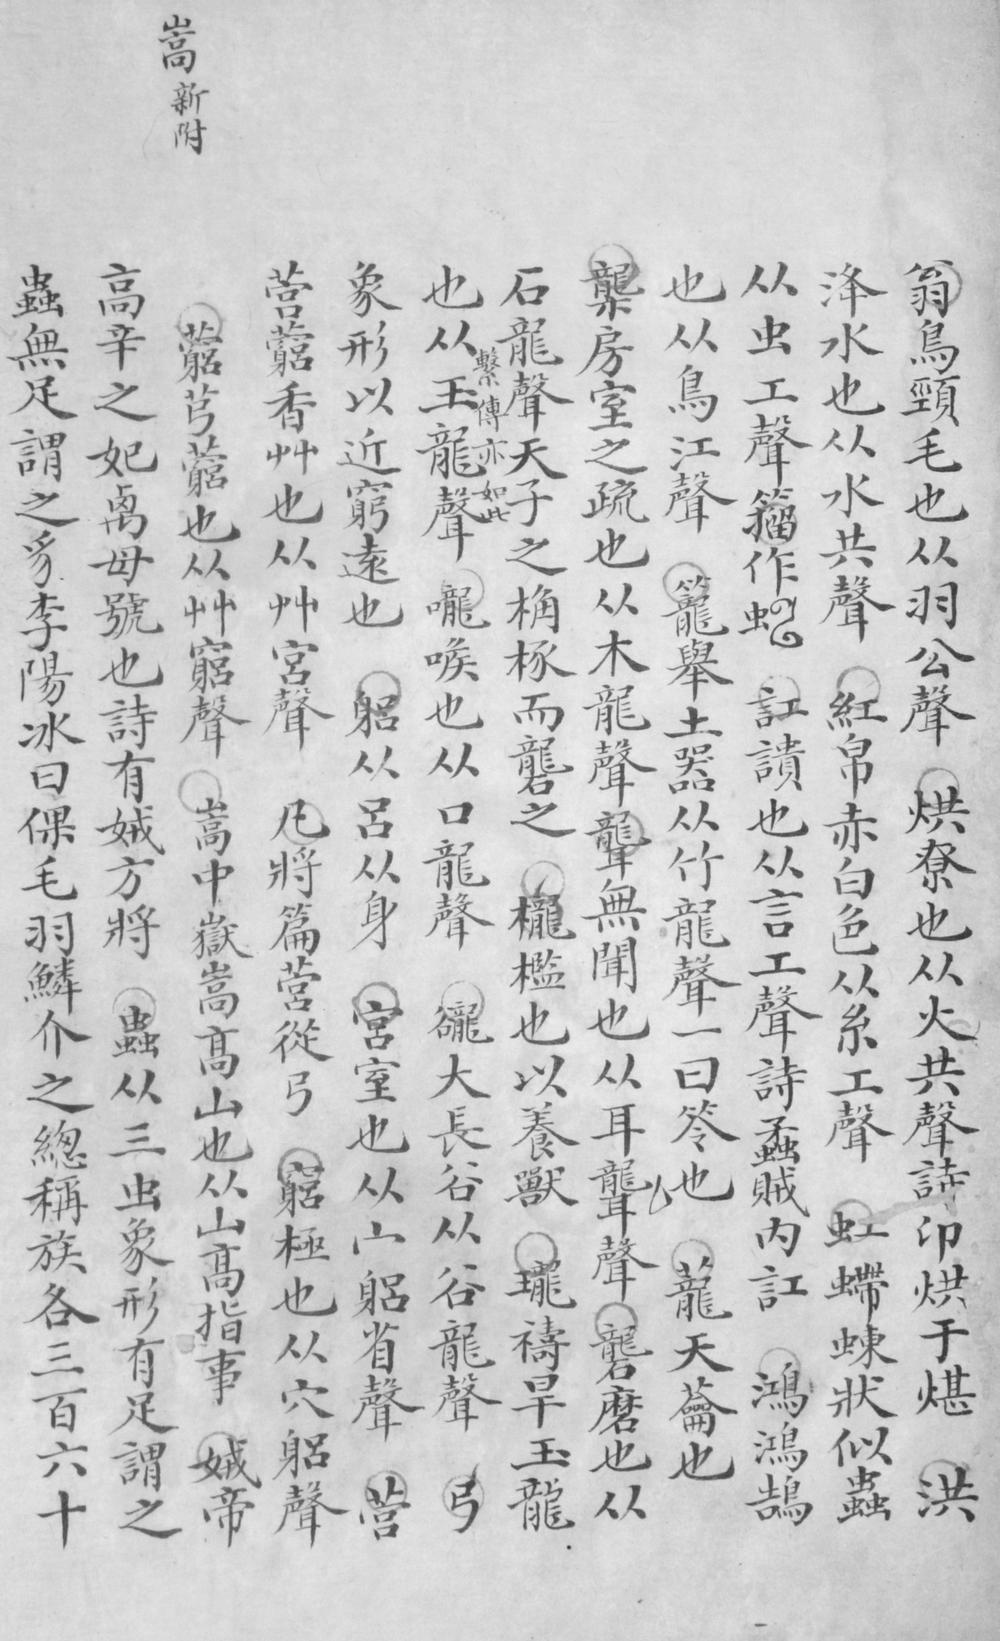 翁鳥頸毛也从羽公聲　烘尞也从火共聲詩卬烘于煁　洪
洚水也从水共聲　紅帛赤白色从糸工聲　虹螮蝀狀似蟲
从虫工聲籀作　訌讃也从言工聲詩蟊賊內訌　鴻鴻鵠
也从鳥江聲　籠舉土器从竹龍聲一曰笭也　蘢天蘥也
櫳房室之疏也从木龍聲聾無聞也从耳聾聲　礱磨也从
石龍聲天子之桷椓而礱之　櫳檻也以養獸　瓏禱旱玉龍
也从玉龍聲　嚨喉也从口龍聲　豅大長谷从谷龍聲　弓
繫傳亦如此
象形以近窮遠也　躳从呂从身　宮室也从宀躳省聲　营
营藭香艸也从艸宮聲　凡將篇营從弓　竆極也从穴躳聲
藭芎藭也从艸竆聲　嵩中嶽嵩高山也从山高指事　娀帝
高辛之妃禼母號也詩有娀方將　蟲从三虫象形有足謂之
蟲無足謂之豸李陽冰曰倮毛羽鱗介之總稱族各三百六十
嵩新附